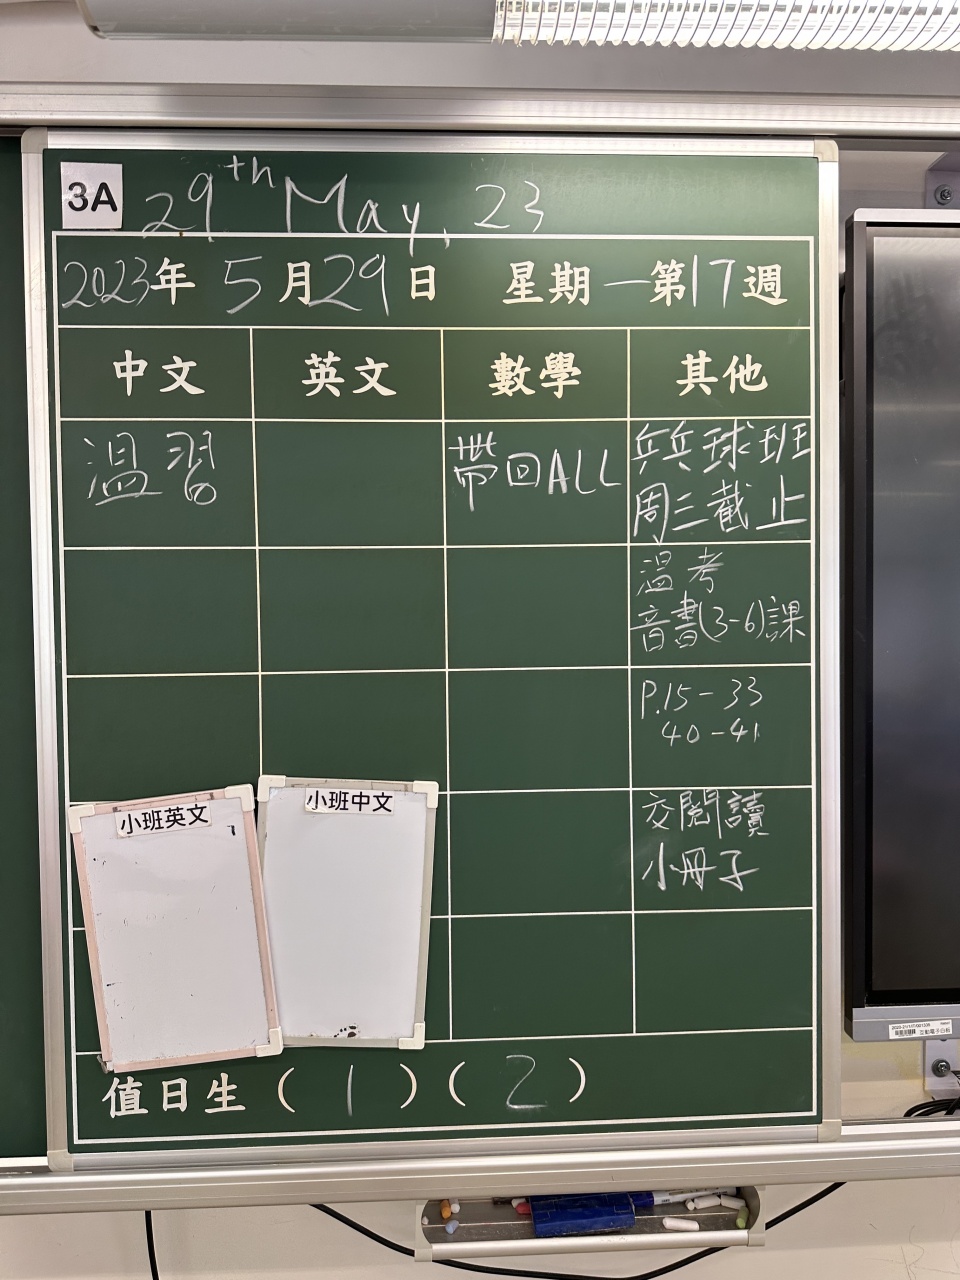 3A
29th May, 23
2023年 5月29日 星期一第17週
中文 英文 數學 其他
溫習
帶回ALL
乒乓球班
周三截止
溫考
音書(3-6)課
P.15-33
40-41
交閱讀
小冊子
小班英文
小班中文
值日生（1）（2）
互動電子白板